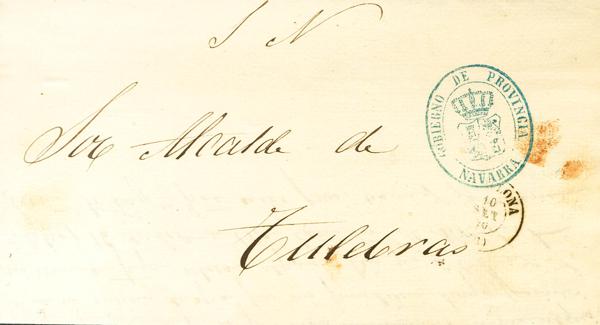 S N.
Sor Alcalde de
Tulebras
GOBIERNO DE PROVINCIA
NAVARRA
ONA
10
SET